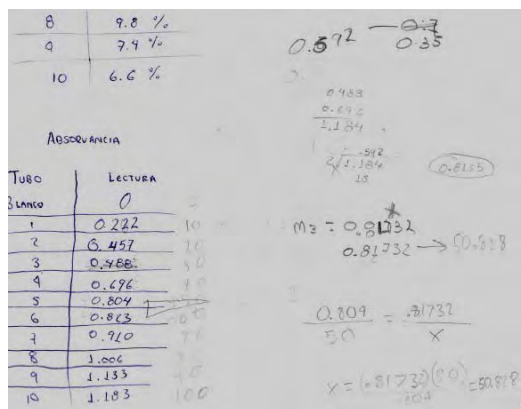 8 9.8 %
9 7.4 %
10 6.6 %
ABSORVANCIA
TUBO LECTURA
BLANCO 0
1 0.222 10
2 0.457 20
3 0.488
4 0.696
5 0.804
6 0.863
7 0.910
8 1.006
9 1.133
10 1.183 100
0.592 — 0.7
0.35
0.488
0.696
1.184
.592
2 1.184
18
0.8135
M3 = 0.81732
0.81732 → 50.828
0.804 = .81732
50 X
X = (.81732)(50) = 50.828
.804